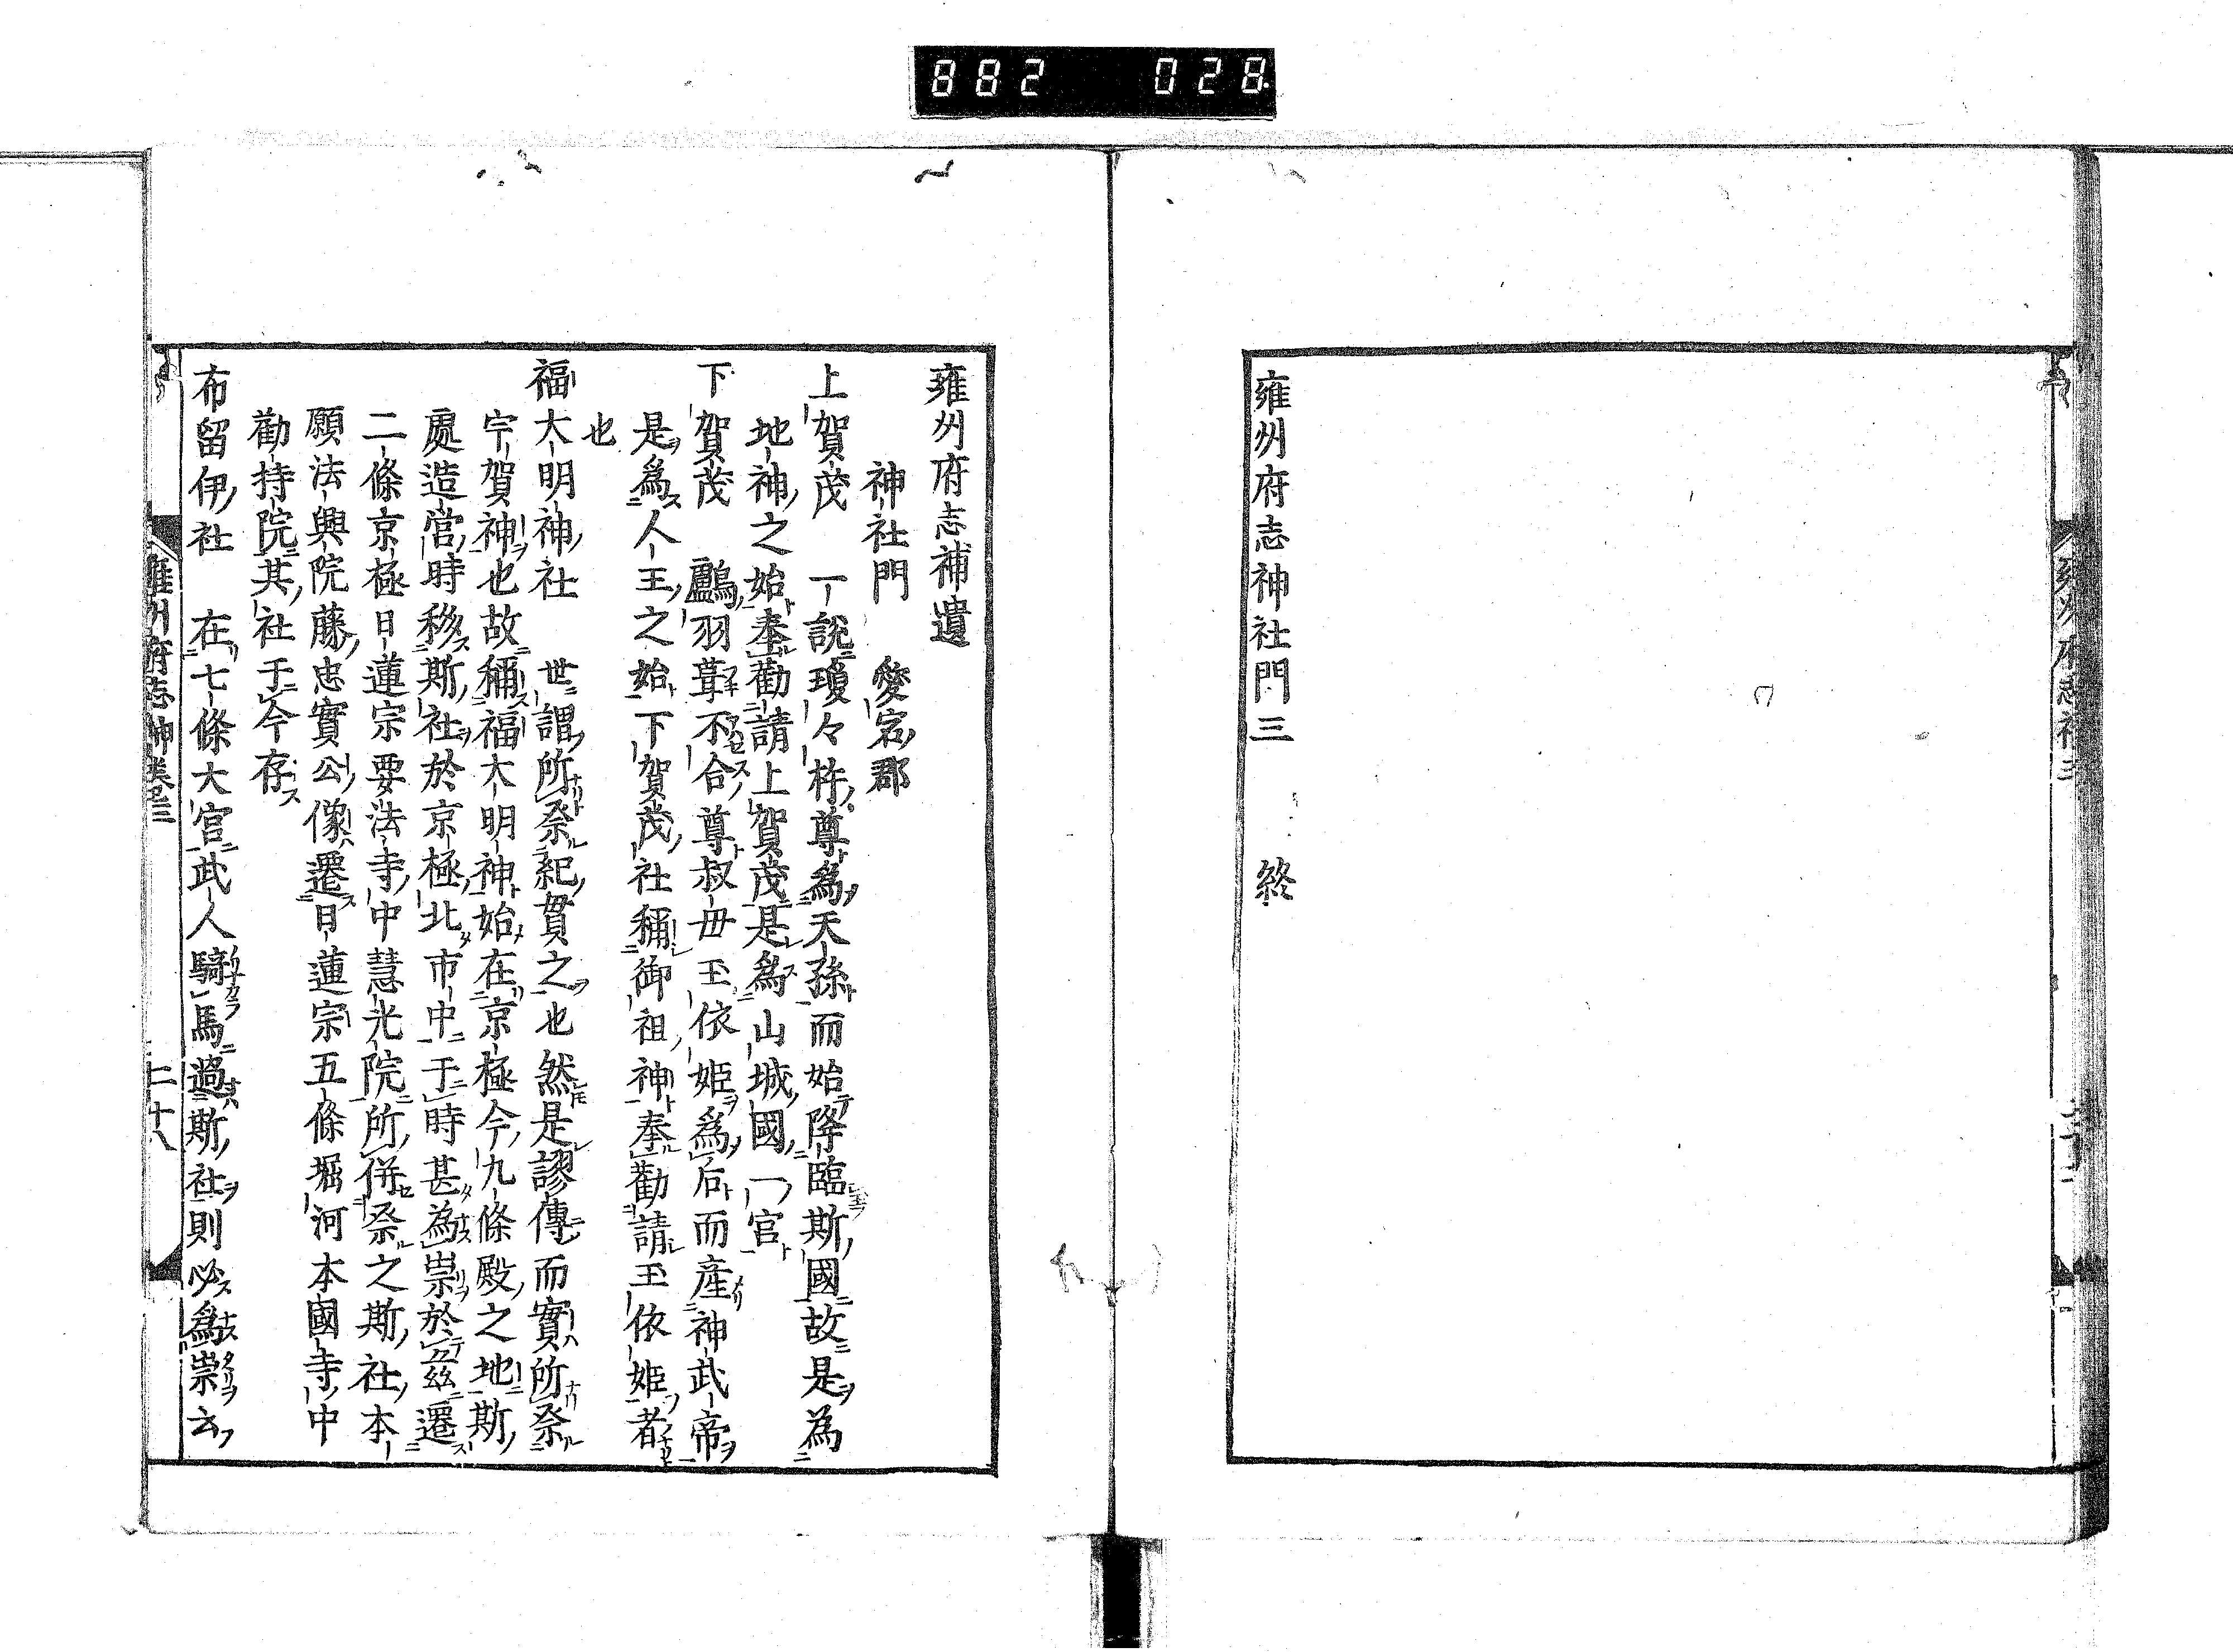 882 028
雍州府志神社門三 終
雍州府志補遺
神社門 愛宕郡
上賀茂 一說瓊々杵尊為天孫而始降臨斯國故是為
地神之始奉勸請上賀茂是為山城國一宮
下賀茂 鸕羽葺不合尊叔母玉依姫為后而產神武帝
是為人王之始下賀茂社稱御祖神奉勸請玉依姫者
也
福大明神社 世謂所祭紀貫之也然是謬傳而實所祭
宇賀神也故稱福大明神始在京極今九條殿之地斯
處造営時移斯社於京極北市中于時甚為祟於茲遷
二條京極日蓮宗要法寺中慧光院所併祭之斯社本
願法興院藤忠實公像遷日蓮宗五條堀河本國寺中
勸持院其社于今存
布留伊社 在七條大宮武人騎馬過斯社則必為祟云
雍州府志神 卷三
二十八